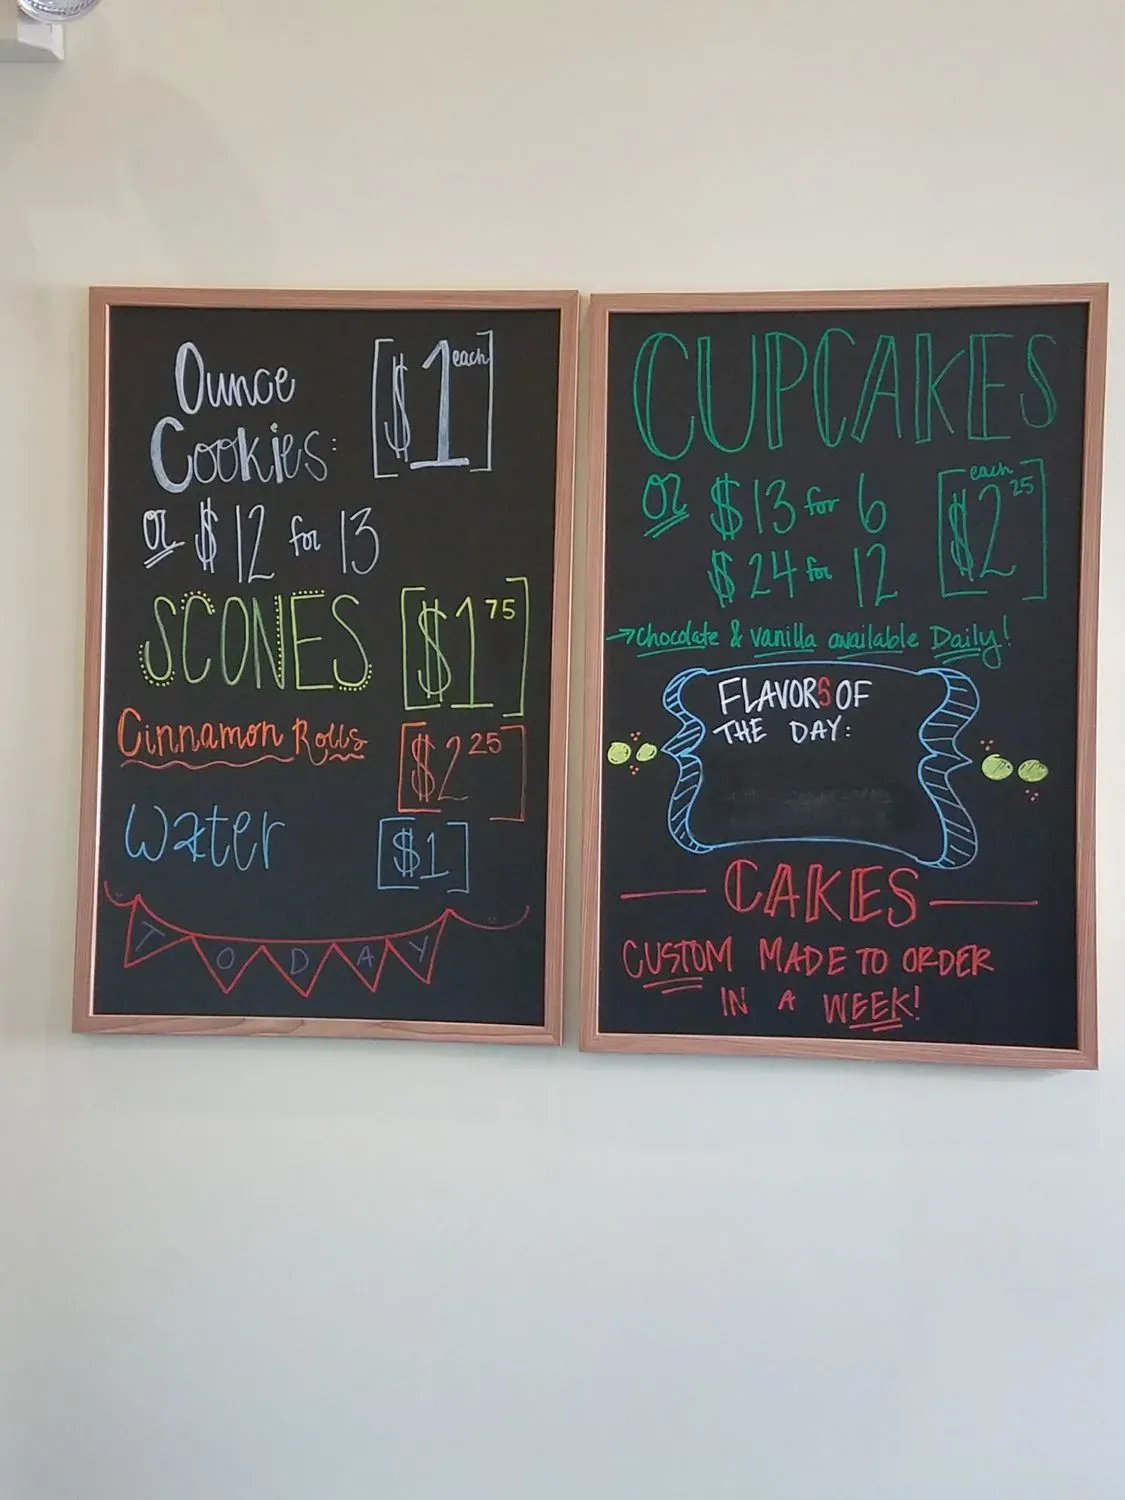 Ounce
Cookies: [$1 each]
or $12 for 13
SCONES [$1 75]
Cinnamon Rolls [$2 25]
Water [$1]
TODAY
CUPCAKES
or $13 for 6 [$2 25 each]
$24 for 12
→ chocolate & vanilla available Daily!
FLAVORS OF
THE DAY:
CAKES
CUSTOM MADE TO ORDER
IN A WEEK!